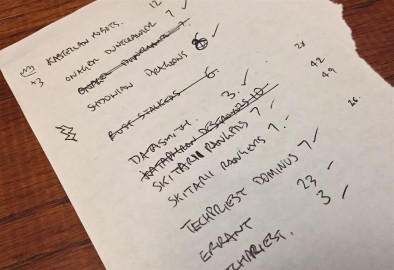 KASTELAN ROBOTS. 12
x3 ONAGER DUNECRAWLER 7 ✓
SYDONIAN DRAGOONS 8 ✓
RUST STALKERS 6.
DATASMITH. 3. ✓
KATAPHRON DESTROYERS 10
SKITARII RANGERS 7 ✓
SKITARII RANGERS 7.-
TECHPRIEST DOMINUS 7 ✓
ERRANT 23 ✓
TECHPRIEST. 3 ✓
28
42
49
26.